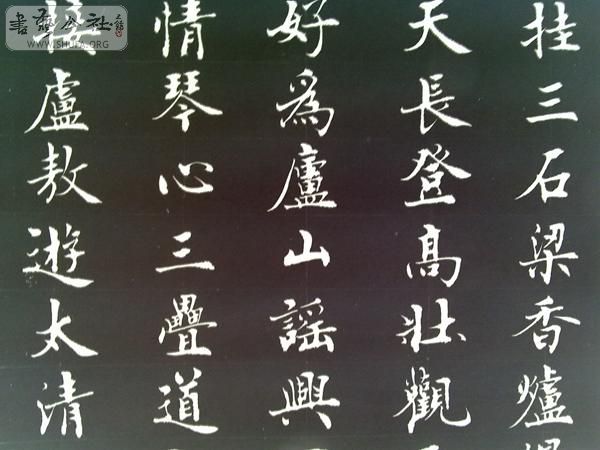 挂三石梁香爐
天長登高壯觀
好為廬山謠興
情琴心三疊道
接盧敖遊太清
書法公社
WWW.SHUFA.ORG